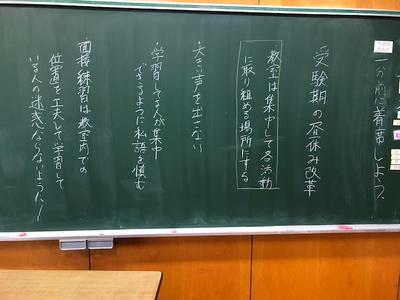 一分前に着席しよう。
受験期の昼休み改革
教室は集中して各活動
に取り組める場所にする
大きい声を出さない
学習してる人が集中
できるように私語を慎む
面接練習は教室内での
位置を工夫して学習して
いる人の迷惑にならないように！